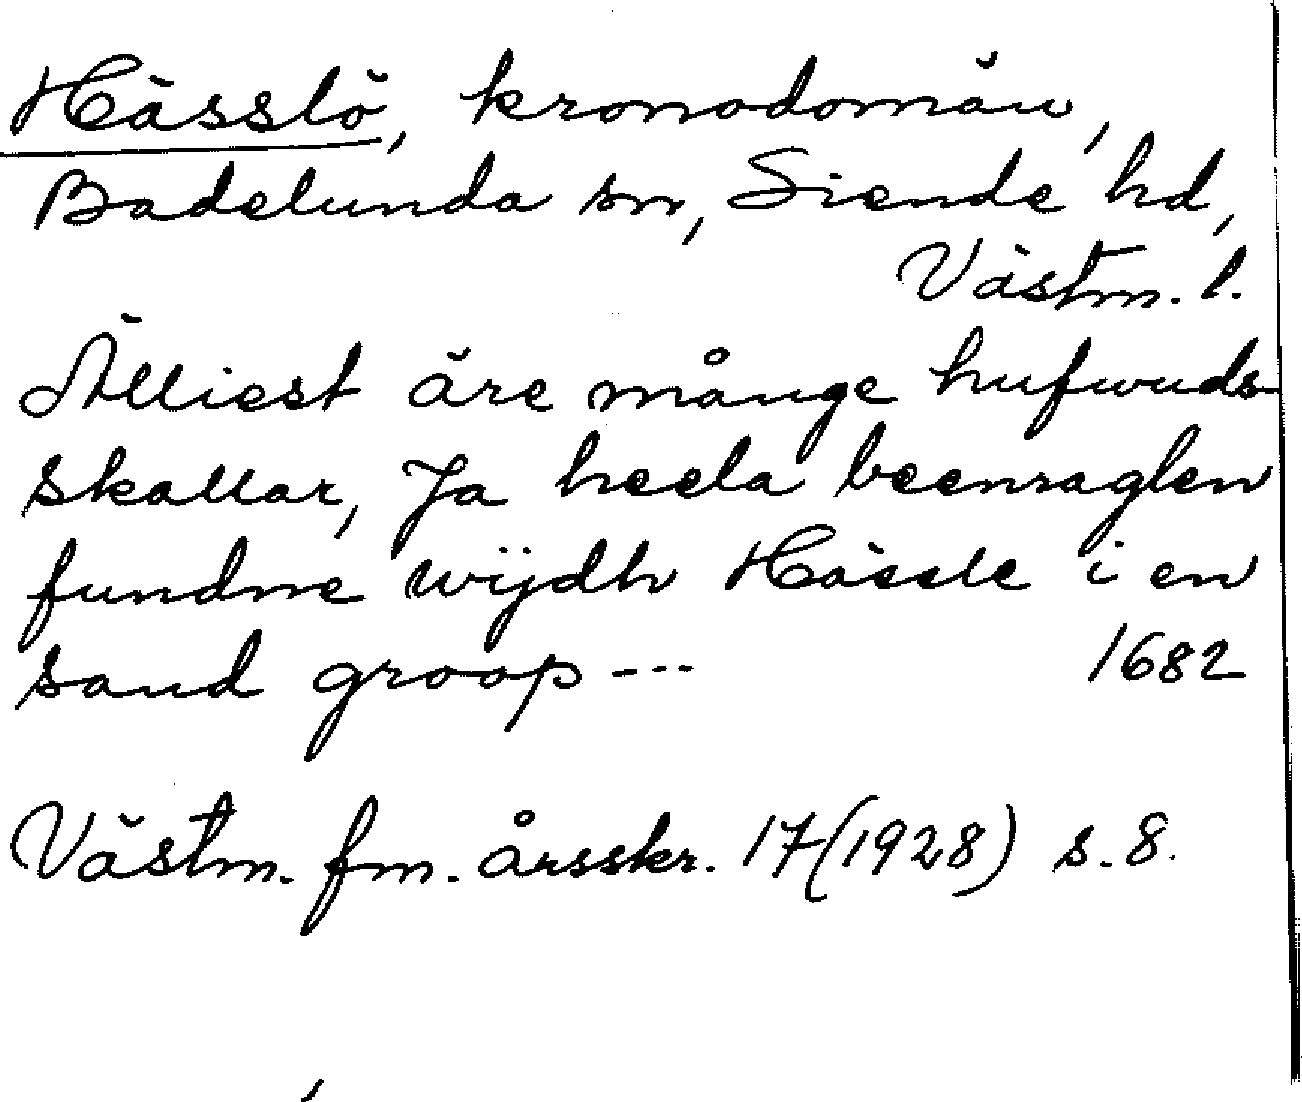 Hässlö, kronodomän,
Badelunda sn, Siende hd,
Västm. l.
Älliest äre månge hufwuds
skallar, Ja heela beenraglen
fundne wijdh Hässle i en
sand groop --- 1682
Västm. fm. årsskr. 17 (1928) s. 8.